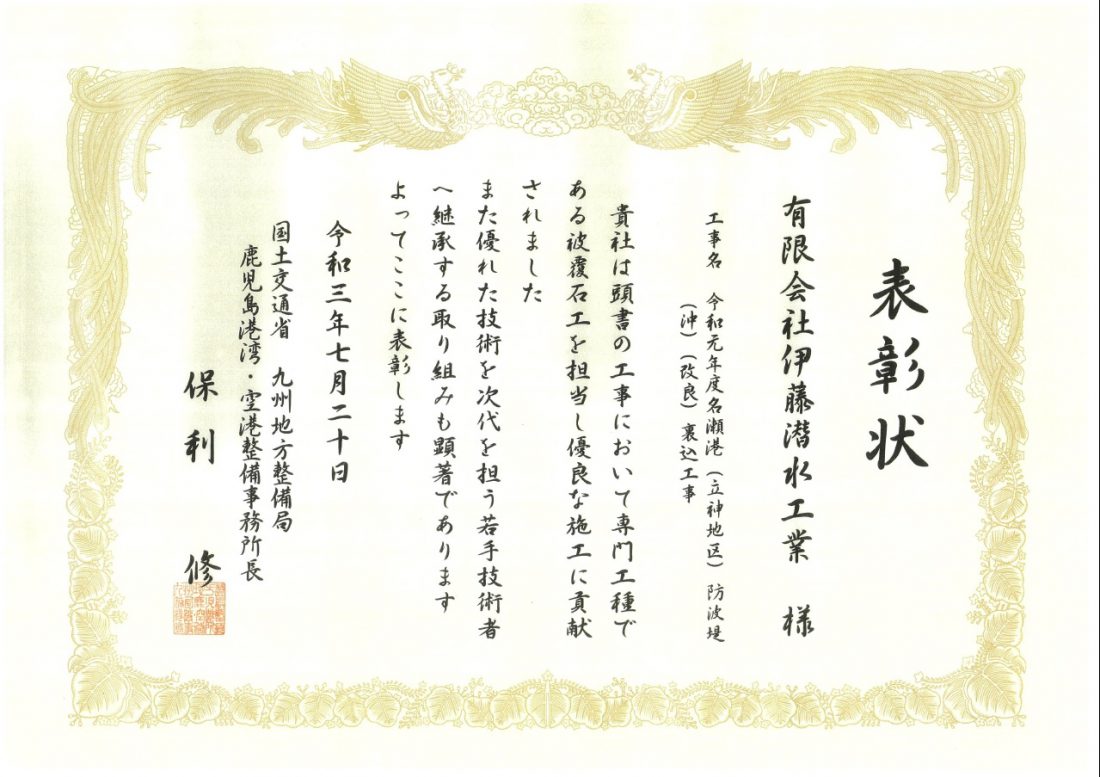 表彰状
有限会社伊藤潜水工業 様
工事名 令和元年度名瀬港(立神地区)防波堤
(沖)(改良)裏込工事
貴社は頭書の工事において専門工種で
ある被覆石工を担当し優良な施工に貢献
されました
また優れた技術を次代を担う若手技術者
へ継承する取り組みも顕著であります
よってここに表彰します
令和三年七月二十日
国土交通省 九州地方整備局
鹿児島港湾・空港整備事務所長
保利 修